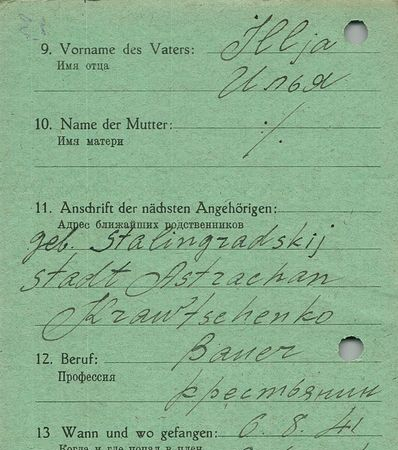 9. Vorname des Vaters: Illja
Имя отца Илья
10. Name der Mutter: ./.
Имя матери
11. Anschrift der nächsten Angehörigen:
Адрес ближайших родственников
geb. Stalingradskij
stadt Astrachan
Krawtschenko
12. Beruf: Bauer
Профессия крестьянин
13 Wann und wo gefangen: 6. 8. 41
Когда и где попал в плен